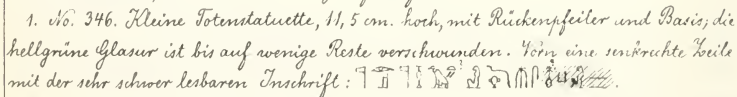 1. No. 346. Kleine Totenstatuette, 11,5 cm. hoch, mit Rückenpfeiler und Basis; die
hellgrüne Glasur ist bis auf wenige Reste verschwunden. Vorn eine senkrechte Zeile
mit der sehr schwer lesbaren Inschrift: